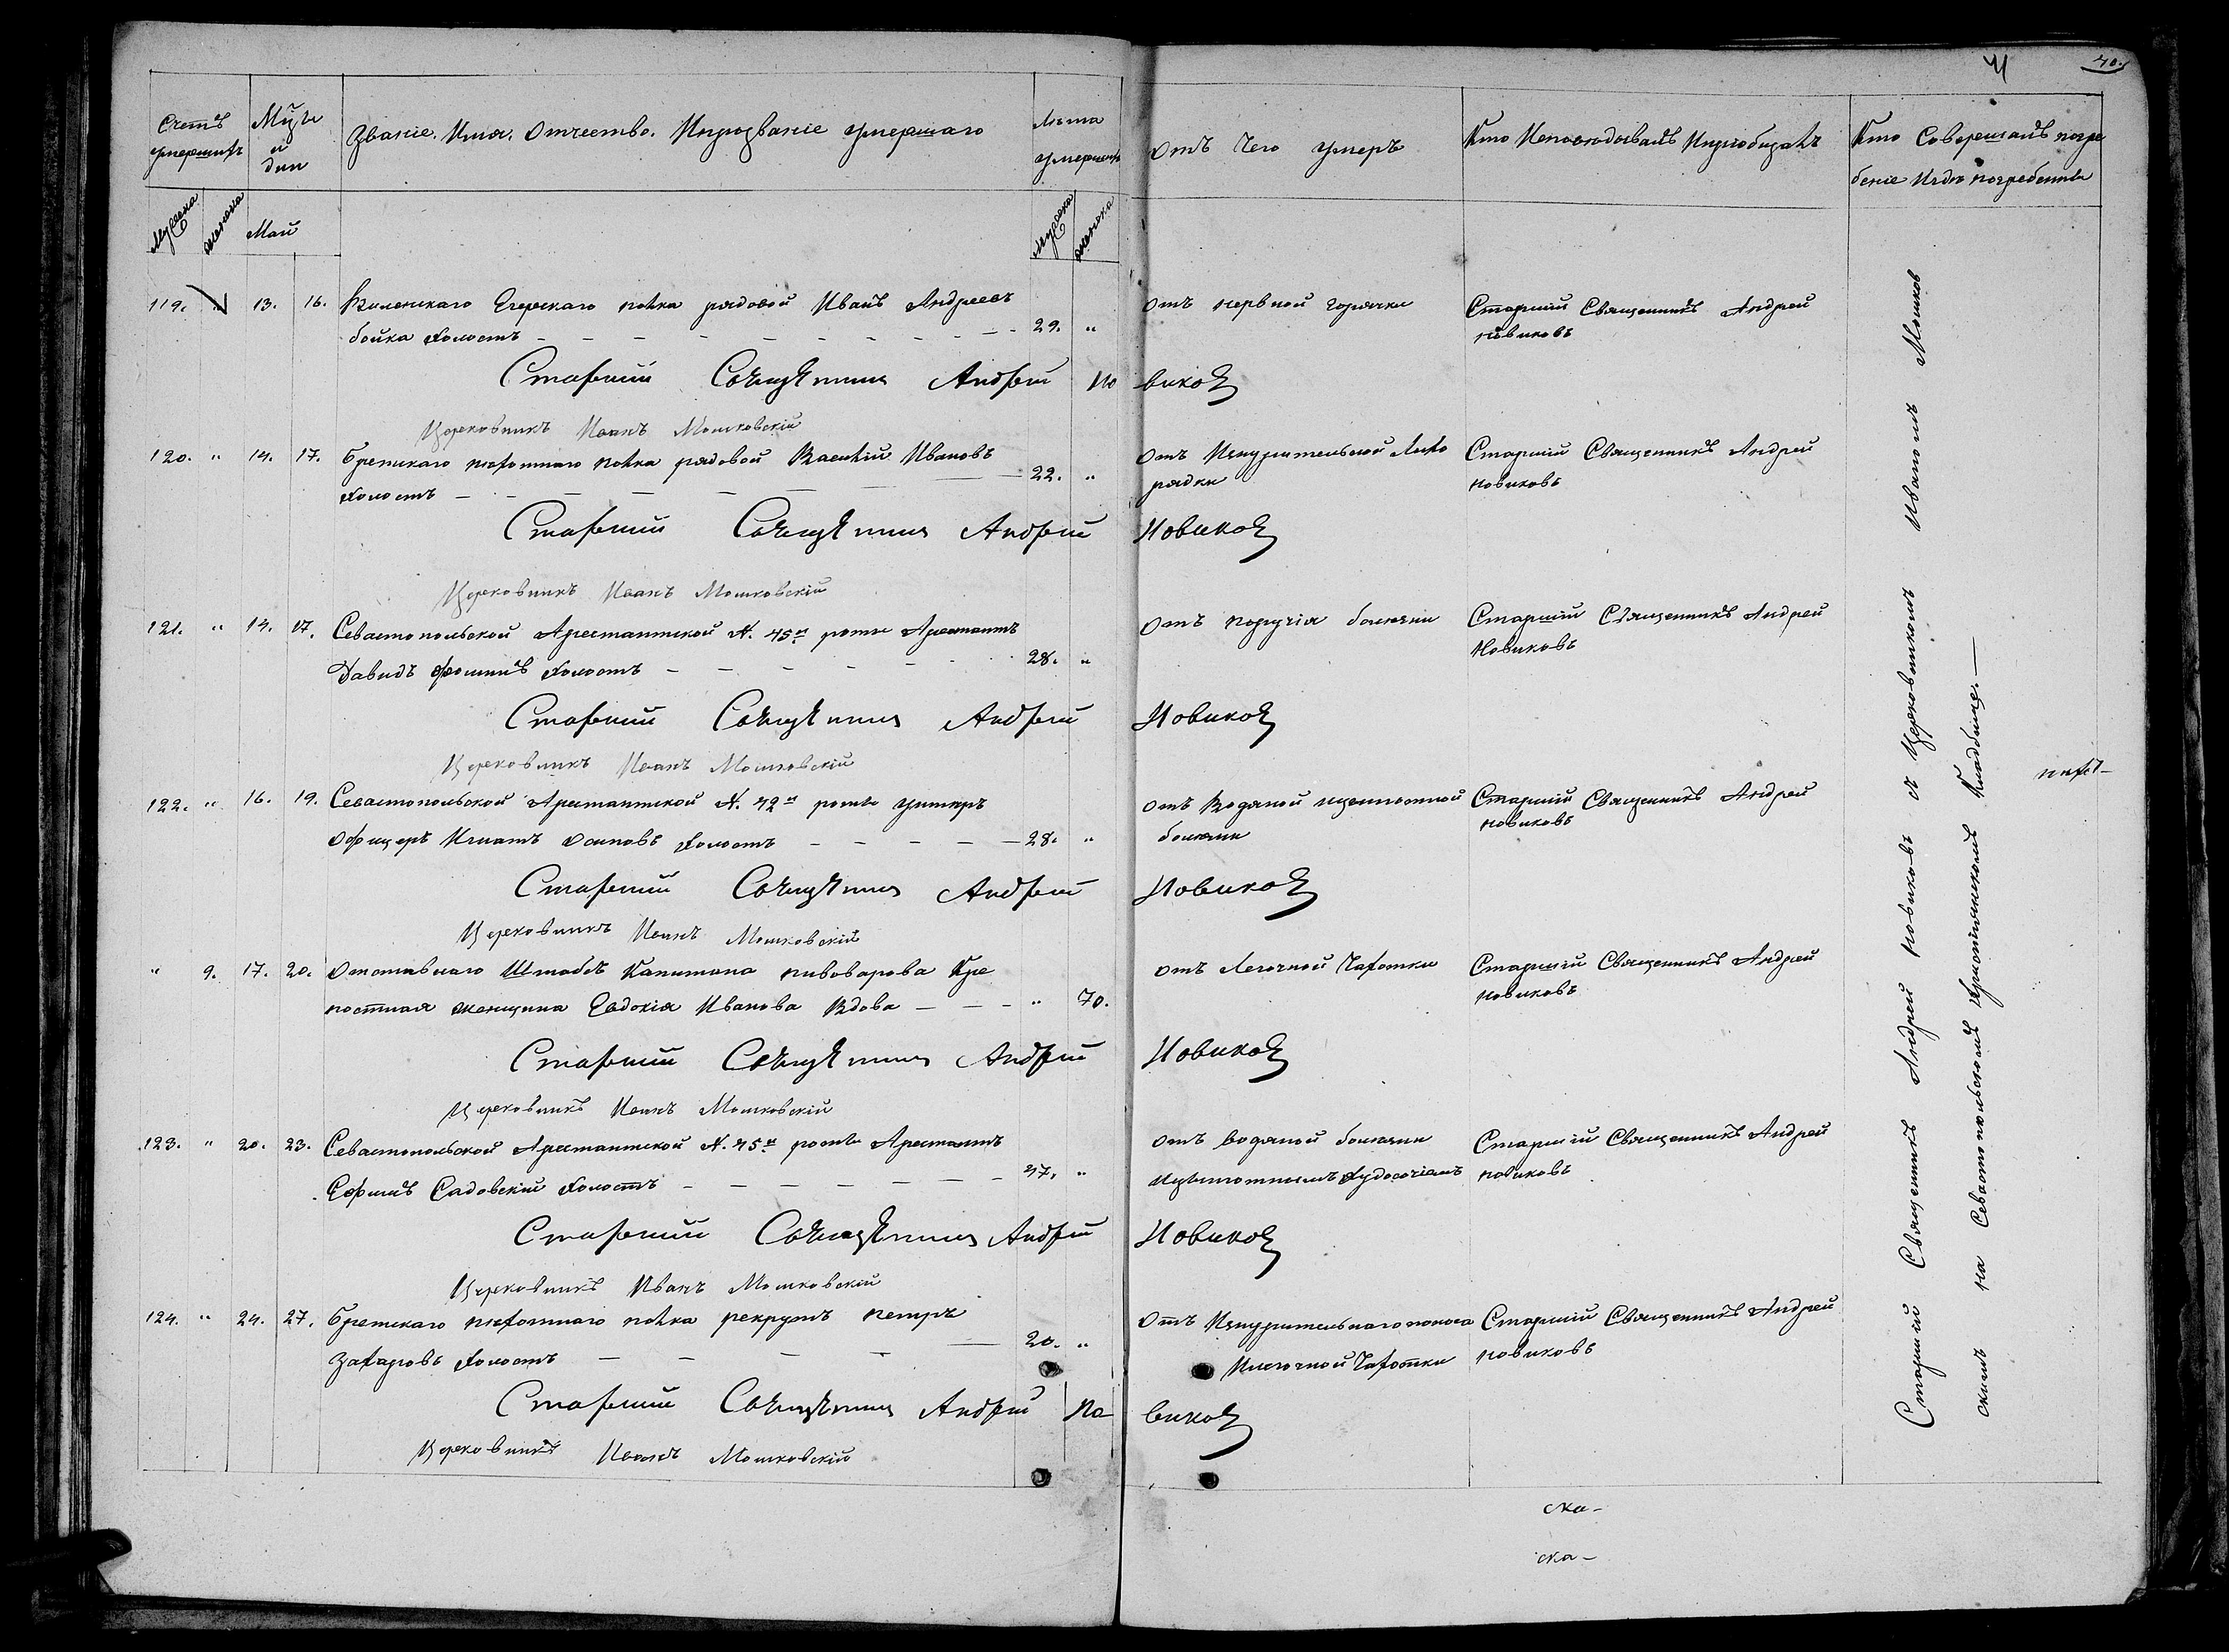 40.
Счетъ умершихъ
Мѣсяцъ и дни
Званіе. Имя. Отчество. Ипрозваніе умершаго
Лѣта умершихъ
Отъ Чего умеръ
Кто Исповѣдывалъ Ипріобщалъ
Кто Совершалъ погре
беніе Игдѣ погребенны
Мужеска
женска
Май
Мужеска
женска
119. " 13. 16. Виленскаго Егерскаго полка рядовой Иванъ Андреевъ
бойка холостъ 29. "
отъ нервной горячки
Старшій Священникъ Андрей
новиковъ
Старший Священникъ Андрей Новиковъ
Церковникъ Иванъ Мошковскій
120. " 14. 17. Брестскаго пѣхотнаго полка рядовой Василій Ивановъ
холостъ 22. "
Отъ Изнурительной Лихо
радки
Старшій Священникъ Андрей
новиковъ
Старший Священникъ Андрей Новиковъ
Церковникъ Иванъ Мошковскій
121. " 14. 17. Севастопольской Арестантской N. 45й роты Арестантъ
Давидъ Фоминъ холостъ 28. "
Отъ падучія болезни
Старшій Священникъ Андрей
Новиковъ
Старший Священникъ Андрей Новиковъ
Церковникъ Иванъ Мошковскій
122. " 16. 19. Севастопольской Арестантской N. 42й роты унтеръ
офицеръ Игнатъ Осиповъ холостъ 28. "
Отъ Водяной
болезни
Старшій Священникъ Андрей
новиковъ
Старший Священникъ Андрей Новиковъ
Церковникъ Иванъ Мошковскій
" 9. 17. 20. Отставнаго Штабсъ Капитана пивоварова Кре
постная женщина Евдокія Иванова Вдова " 70.
отъ Легочной Чахотки
Старшій Священникъ Андрей
новиковъ
Старший Священникъ Андрей Новиковъ
Церковникъ Иванъ Мошковскій
123. " 20. 23. Севастопольской Арестантской N. 45й роты Арестантъ
Ефимъ Садовскій холостъ 47. "
отъ водяной болезни
худосочіемъ
Старшій Священникъ Андрей
новиковъ
Старший Священникъ Андрей Новиковъ
Церковникъ Иванъ Мошковскій
124. " 24. 27. Брестскаго пѣхотнаго полка рекрутъ петръ
Захаровъ холостъ 20. "
Отъ Изнурительнаго поноса
Илегочной Чахотки
Старшій Священникъ Андрей
новиковъ
Старший Священникъ Андрей Новиковъ
Церковникъ Иванъ Мошковскій
Старшій Священникъ Андрей новиковъ съ Церковникомъ Иваномъ Мошков
скимъ на Севастопольскомъ Кладбище.
ска-
ска-